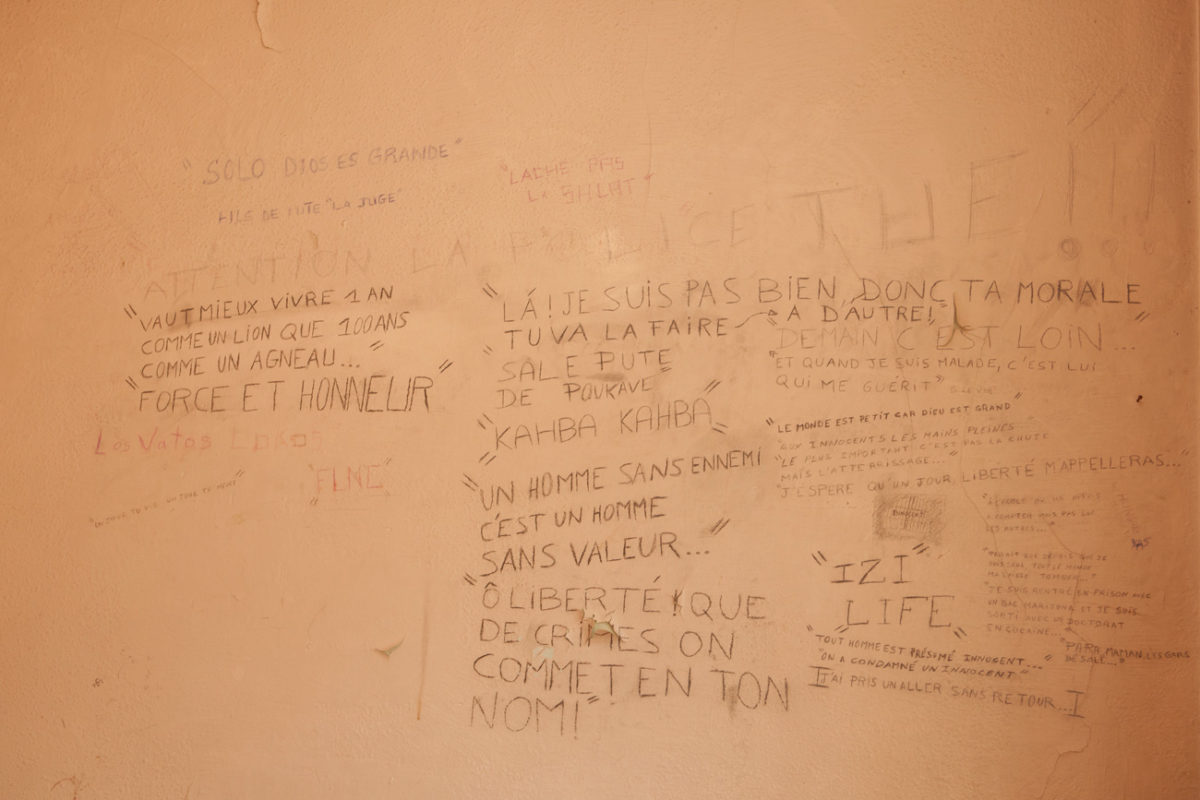 "SOLO DIOS ES GRANDE"
"LACHE PAS
LA SHLAT"
FILS DE PUTE "LA JUGE"
ATTENTION LA POLICE TUE!!!
"VAUT MIEUX VIVRE 1 AN
COMME UN LION QUE 100 ANS
COMME UN AGNEAU..."
"FORCE ET HONNEUR"
Los Vatos LOCOS
"FLNC"
"LÁ! JE SUIS PAS BIEN, DONC TA MORALE
TU VA LA FAIRE → A D'AUTRE!"
"SALE PUTE
DE POUKAVE"
"KAHBA KAHBA"
"UN HOMME SANS ENNEMI
C'EST UN HOMME
SANS VALEUR..."
"Ô LIBERTÉ! QUE
DE CRIMES ON
COMMET EN TON
NOM!"
"DEMAIN C'EST LOIN..."
"ET QUAND JE SUIS MALADE, C'EST LUI
QUI ME GUÉRIT"
"LE MONDE EST PETIT CAR DIEU EST GRAND"
"AUX INNOCENTS LES MAINS PLEINES..."
"LE PLUS IMPORTANT C'EST PAS LA CHUTE
MAIS L'ATTERRISSAGE..."
"J'ESPERE QU'UN JOUR, LIBERTÉ M'APPELLERAS..."
"IZI
LIFE"
"JE SUIS RENTRÉ EN PRISON AVEC
UN BAC MARIJUANA ET JE SUIS
SORTI AVEC UN DOCTORAT
EN COCAINE..."
"TOUT HOMME EST PRÉSUMÉ INNOCENT..."
"ON A CONDAMNÉ UN INNOCENT"
"PARA, MAMAN, LES GARS
DE SALÉ..."
J'AI PRIS UN ALLER SANS RETOUR...